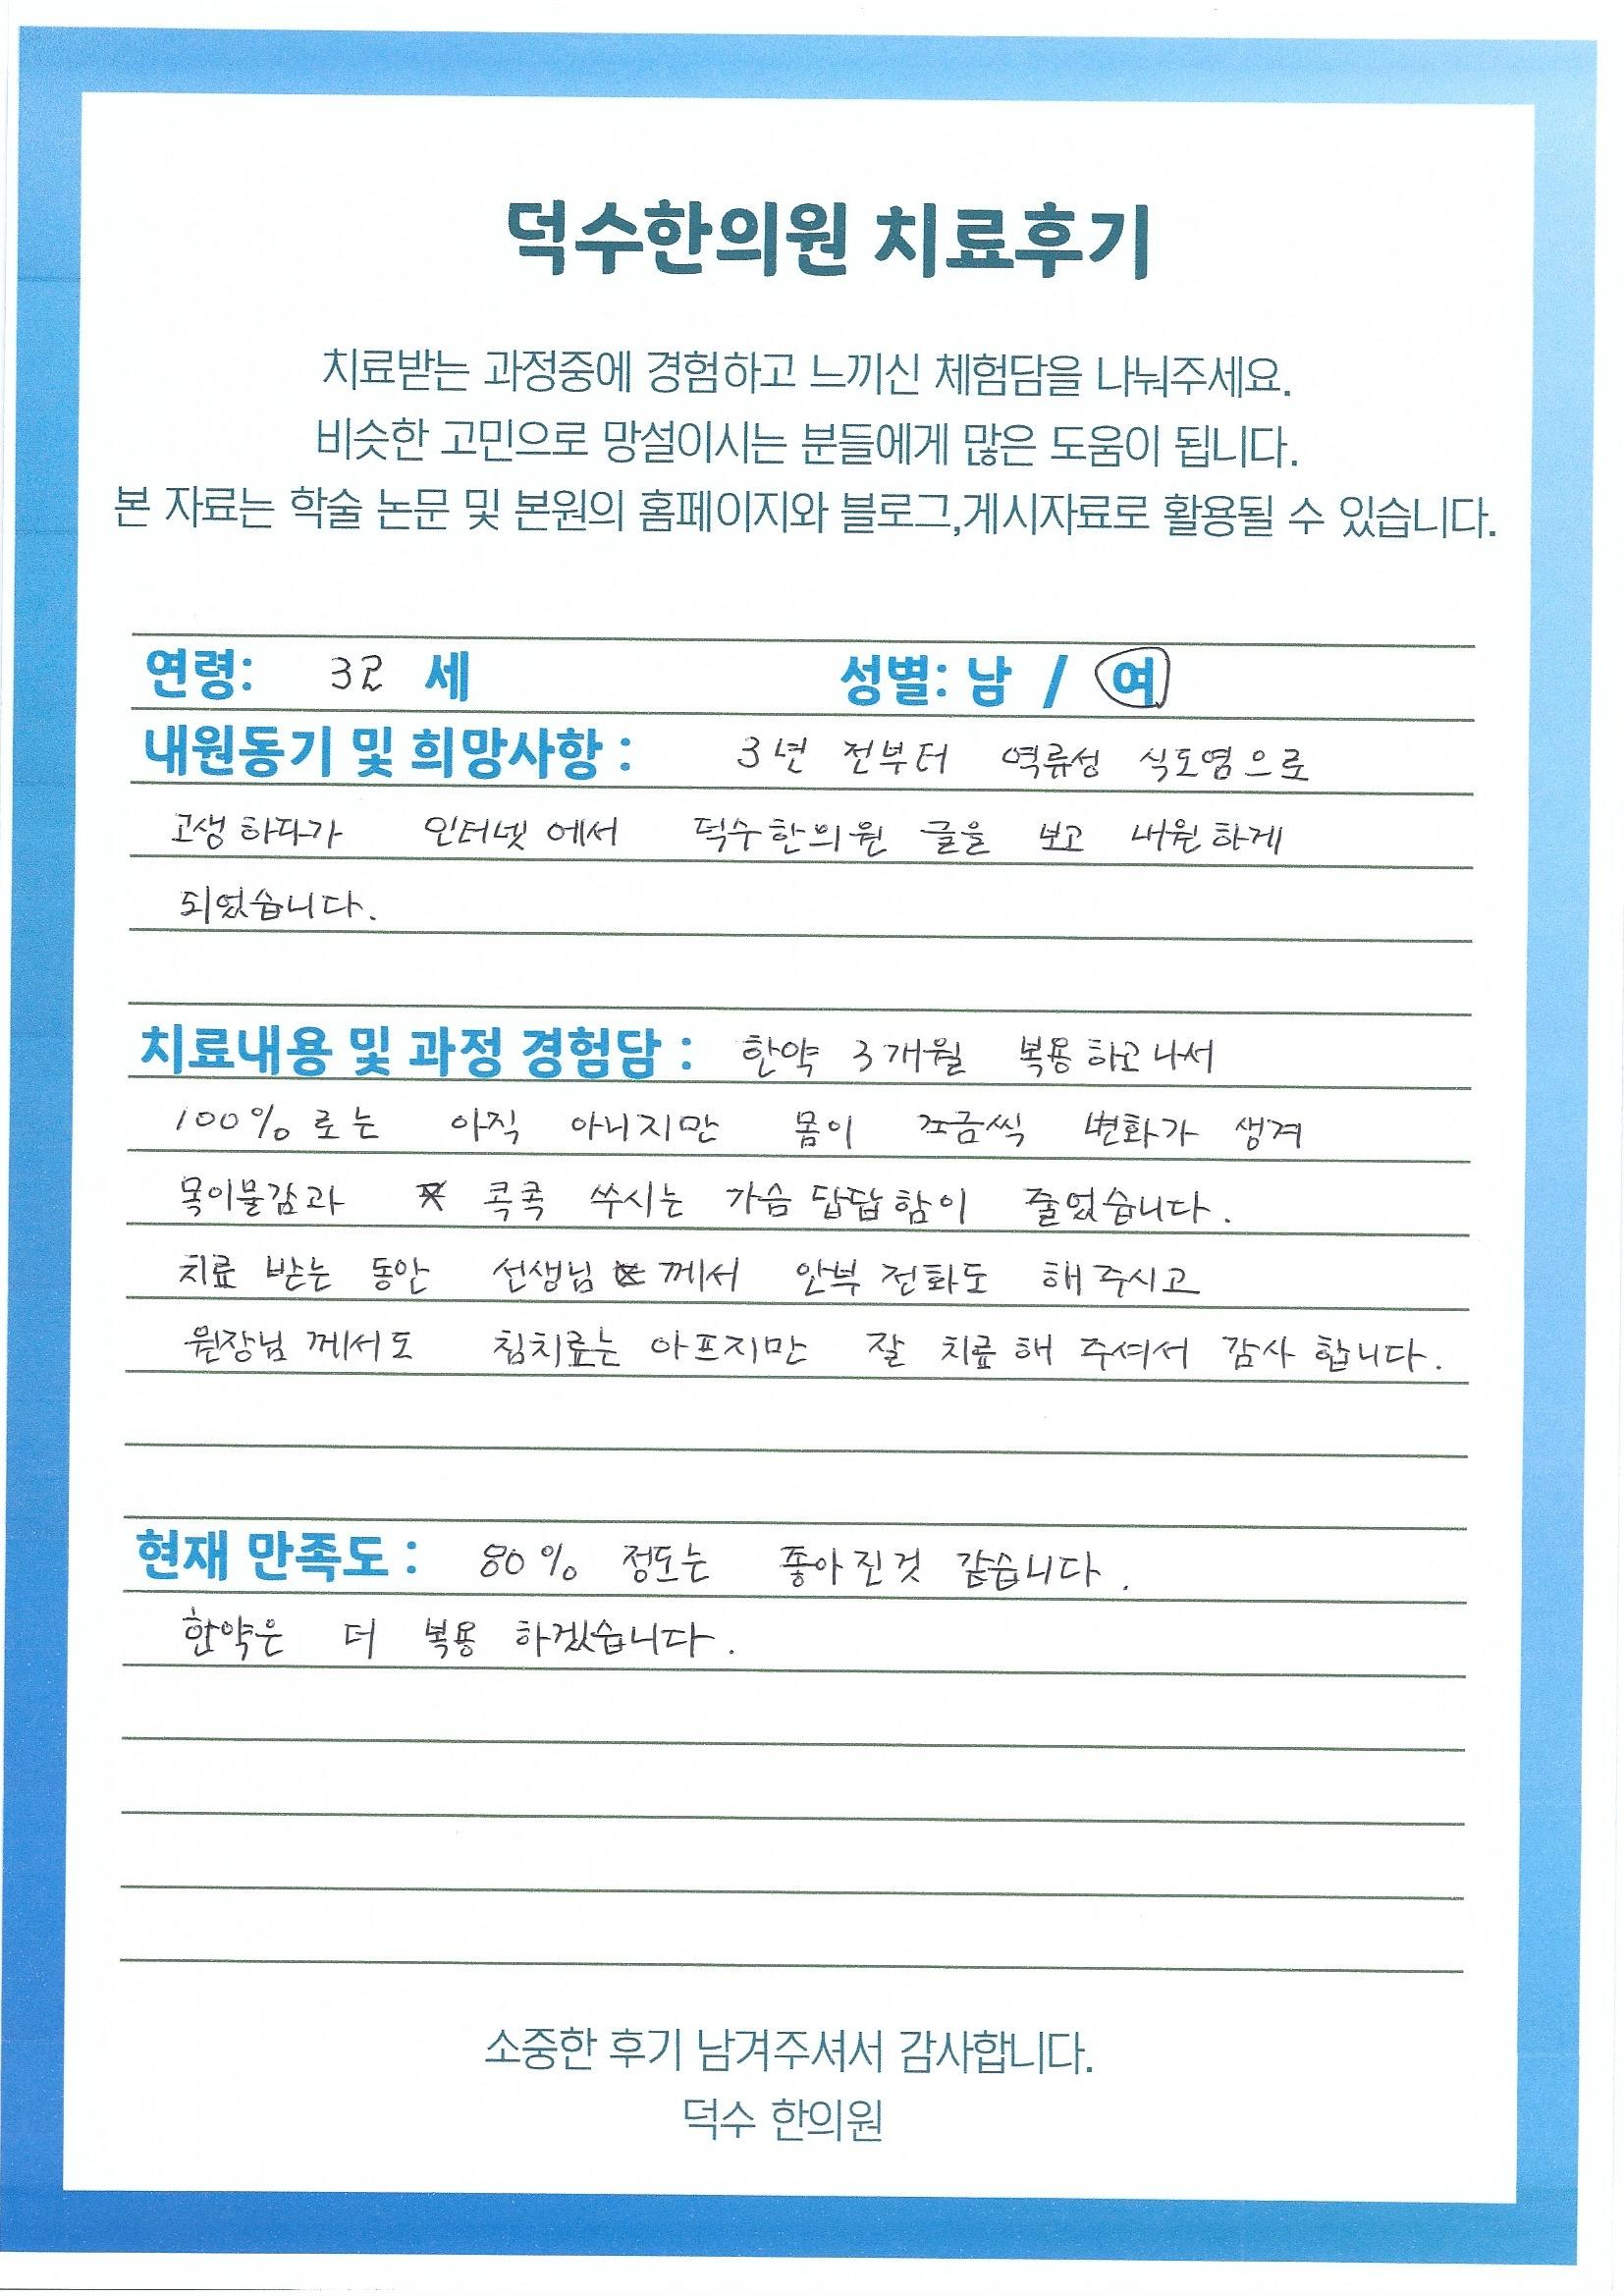 덕수한의원 치료후기
치료받는 과정중에 경험하고 느끼신 체험담을 나눠주세요.
비슷한 고민으로 망설이시는 분들에게 많은 도움이 됩니다.
본 자료는 학술 논문 및 본원의 홈페이지와 블로그,게시자료로 활용될 수 있습니다.
연령: 세 성별: 남 / 여
내원동기 및 희망사항 : 3년 전부터 역류성 식도염으로
고생하다가 인터넷에서 덕수한의원 글을 보고 내원하게
되었습니다.
치료내용 및 과정 경험담 : 한약 3개월 복용하고나서
100%로는 아직 아니지만 몸이 조금씩 변화가 생겨
목이물감과 콕콕 쑤시는 가슴답답함이 줄었습니다.
치료 받는 동안 선생님께서 안부 전화도 해주시고
원장님께서도 침치료는 아프지만 잘 치료해 주셔서 감사합니다.
현재 만족도 : 80% 정도는 좋아진것 같습니다.
한약은 더 복용 하겠습니다.
소중한 후기 남겨주셔서 감사합니다.
덕수 한의원